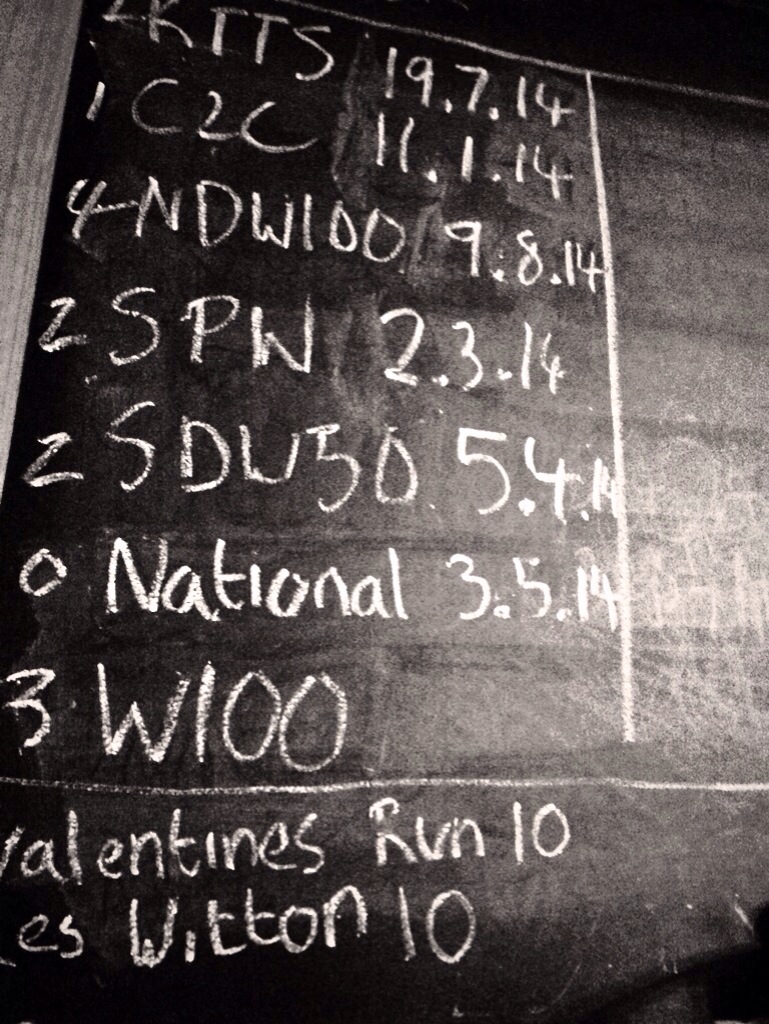 2KTTS 19.7.14
1 C2C 11.1.14
4 NDW100 9.8.14
2 SPW 2.3.14
2 SDW50 5.4.14
0 National 3.5.14
3 W100
Valentines Run 10
es Witton 10